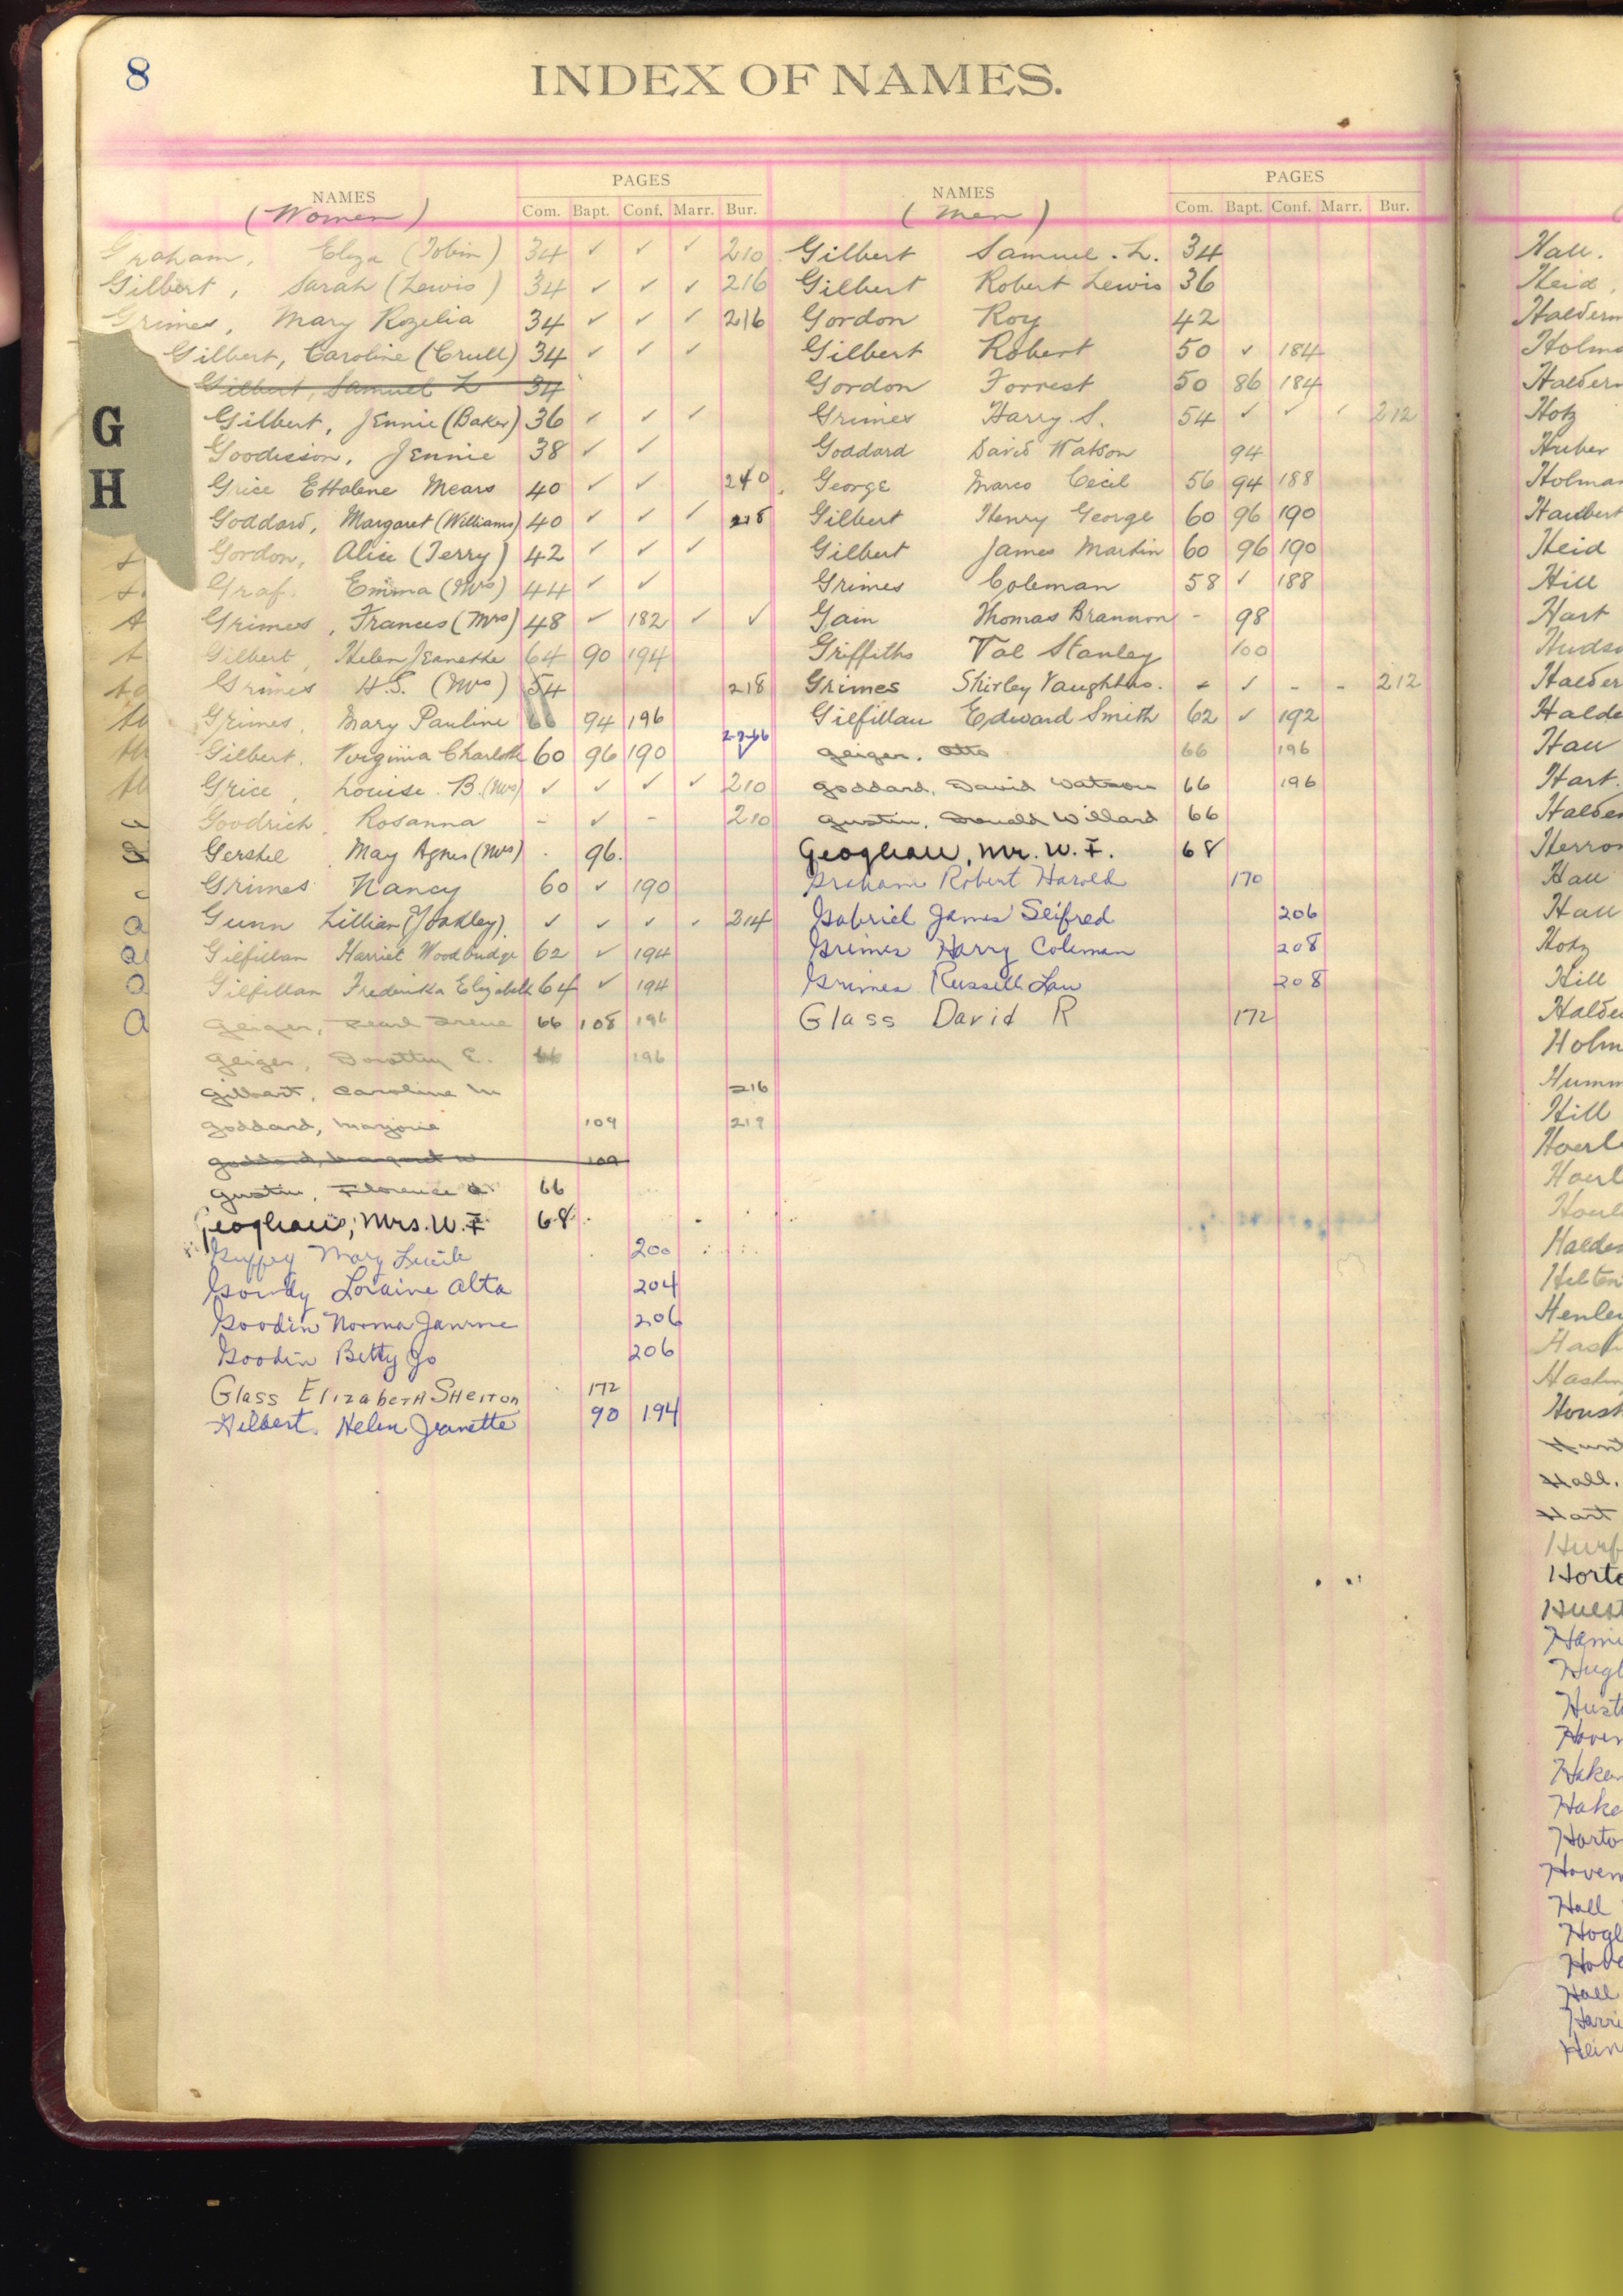 8
INDEX OF NAMES.
NAMES
(Women)
PAGES
Com. Bapt. Conf. Marr. Bur.
Graham, Eliza (Tobin) 34 ✓ ✓ ✓ 210
Gilbert, Sarah (Lewis) 34 ✓ ✓ ✓ 216
Grimes, Mary Rozelia 34 ✓ ✓ ✓ 216
Gilbert, Caroline (Crull) 34 ✓ ✓ ✓
Gilbert, Samuel L 34
G
H
Gilbert, Jennie (Baker) 36 ✓ ✓ ✓
Goodisson, Jennie 38 ✓ ✓
Grice Ettalene Mears 40 ✓ ✓ 240
Goddard, Margaret (Williams) 40 ✓ ✓ ✓ 218
Gordon, Alice (Terry) 42 ✓ ✓ ✓
Graf. Emma (Mrs) 44 ✓ ✓
Grimes, Frances (Mrs) 48 ✓ 182 ✓ ✓
Gilbert, Helen Jeanette 64 90 194
Grimes H.S. (Mrs) 54 218
Grimes, Mary Pauline 66 94 196
Gilbert, Virginia Charlotte 60 96 190 2-9-66 ✓
Grice, Louise. B. (Mrs) ✓ ✓ ✓ ✓ 210
Goodrich, Rosanna - ✓ - 210
Gershel May Agnes (Mrs) - 96.
Grimes Nancy 60 ✓ 190
Gunn Lillian (Yoakley) ✓ ✓ ✓ ✓ 214
Gilfillan Harriet Woodbudge 62 ✓ 194
Gilfillan Frederika Elizabeth 64 ✓ 194
Geiger, Pearl Irene 66 108 196
Geiger, Dorothy E. 66 196
Gilbert, Caroline M 216
Goddard, Marjorie 109 219
Goddard, Margaret W 109
Gustin, Florence A. 66
Geoghan, Mrs. W. F 68
Guffey Mary Lucile 200
Gowdy Loraine Alta 204
Goodin Norma Janine 206
Goodin Betty Jo 206
Glass Elizabeth Shelton 172
Gilbert. Helen Jeanette 90 194
NAMES
(Men)
PAGES
Com. Bapt. Conf. Marr. Bur.
Gilbert Samuel. L. 34
Gilbert Robert Lewis 36
Gordon Roy 42
Gilbert Robert 50 ✓ 184
Gordon Forrest 50 86 184
Grimes Harry S. 54 ✓ ✓ ✓ 212
Goddard David Watson 94
George Marco Cecil 56 94 188
Gilbert Henry George 60 96 190
Gilbert James Martin 60 96 190
Grimes Coleman 58 ✓ 188
Gain Thomas Brannon - 98
Griffiths Val Stanley 100
Grimes Shirley Vaughhus. - ✓ - - 212
Gilfillan Edward Smith 62 ✓ 192
Geiger, Otto 66 196
Goddard, David Watson 66 196
Gustin, Donald Willard 66
Geoghan, Mr. W. F. 68
Graham Robert Harold 170
Gabriel James Seifred 206
Grimes Harry Coleman 208
Grimes Russell Law 208
Glass David R 172
Hall.
Heid,
Hotz
Huber
Heid
Hill
Hart
Hall
Hart.
Hall
Hall
Hotz
Hill
Hill
Hall.
Hart
Hall
Hall